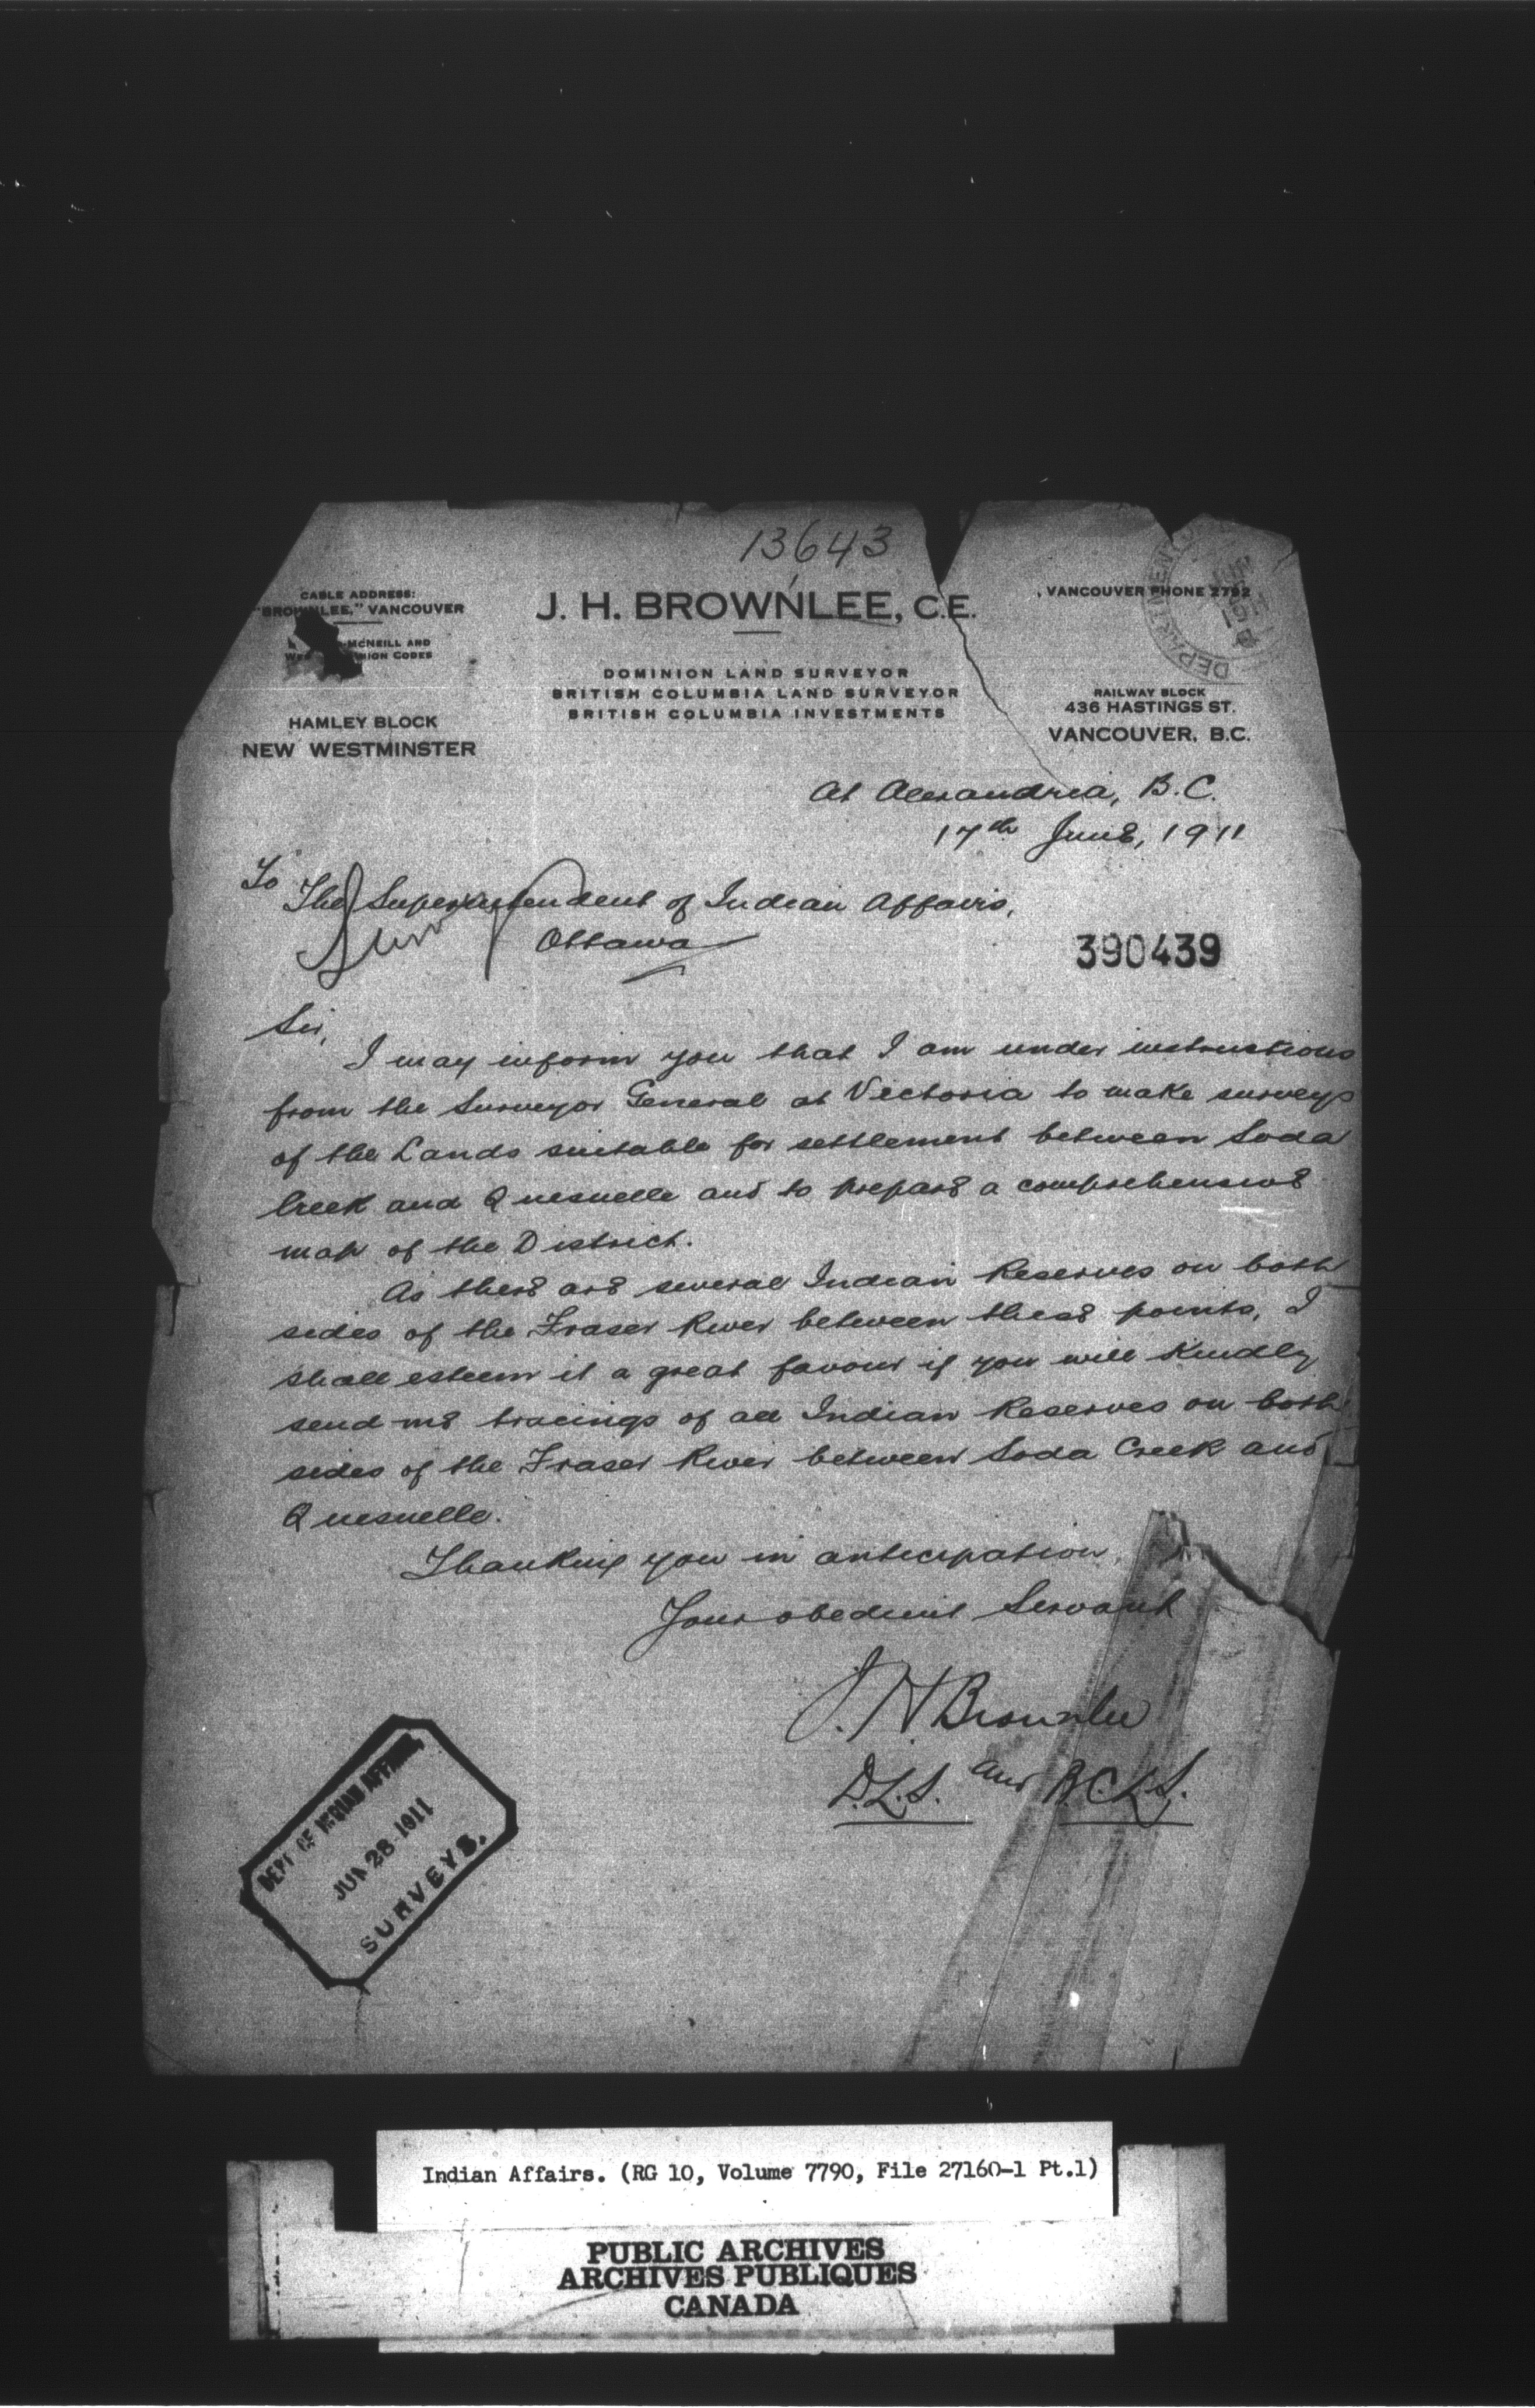 13643
CABLE ADDRESS:
"BROWNLEE," VANCOUVER
MCNEILL AND
UNION CODES
HAMLEY BLOCK
NEW WESTMINSTER
J. H. BROWNLEE, C.E.
DOMINION LAND SURVEYOR
BRITISH COLUMBIA LAND SURVEYOR
BRITISH COLUMBIA INVESTMENTS
VANCOUVER PHONE 2792
RAILWAY BLOCK
436 HASTINGS ST.
VANCOUVER, B.C.
At Alexandria, B.C.
17th June, 1911
To
The Superintendent of Indian Affairs,
Ottawa
Survey
390439
Sir,
I may inform you that I am under instructions
from the Surveyor General at Victoria to make surveys
of the Lands suitable for settlement between Soda
Creek and Quesnelle and to prepare a comprehensive
map of the District.
As there are several Indian Reserves on both
sides of the Fraser River between these points, I
shall esteem it a great favour if you will kindly
send me tracings of all Indian Reserves on both
sides of the Fraser River between Soda Creek and
Quesnelle.
Thanking you in anticipation,
Your obedient Servant
J. H Brownlee
D.L.S. and B.C.L.S.
DEPT OF INDIAN AFFAIRS,
JUN 28 1911
SURVEYS.
Indian Affairs. (RG 10, Volume 7790, File 27160-1 Pt.1)
PUBLIC ARCHIVES
ARCHIVES PUBLIQUES
CANADA